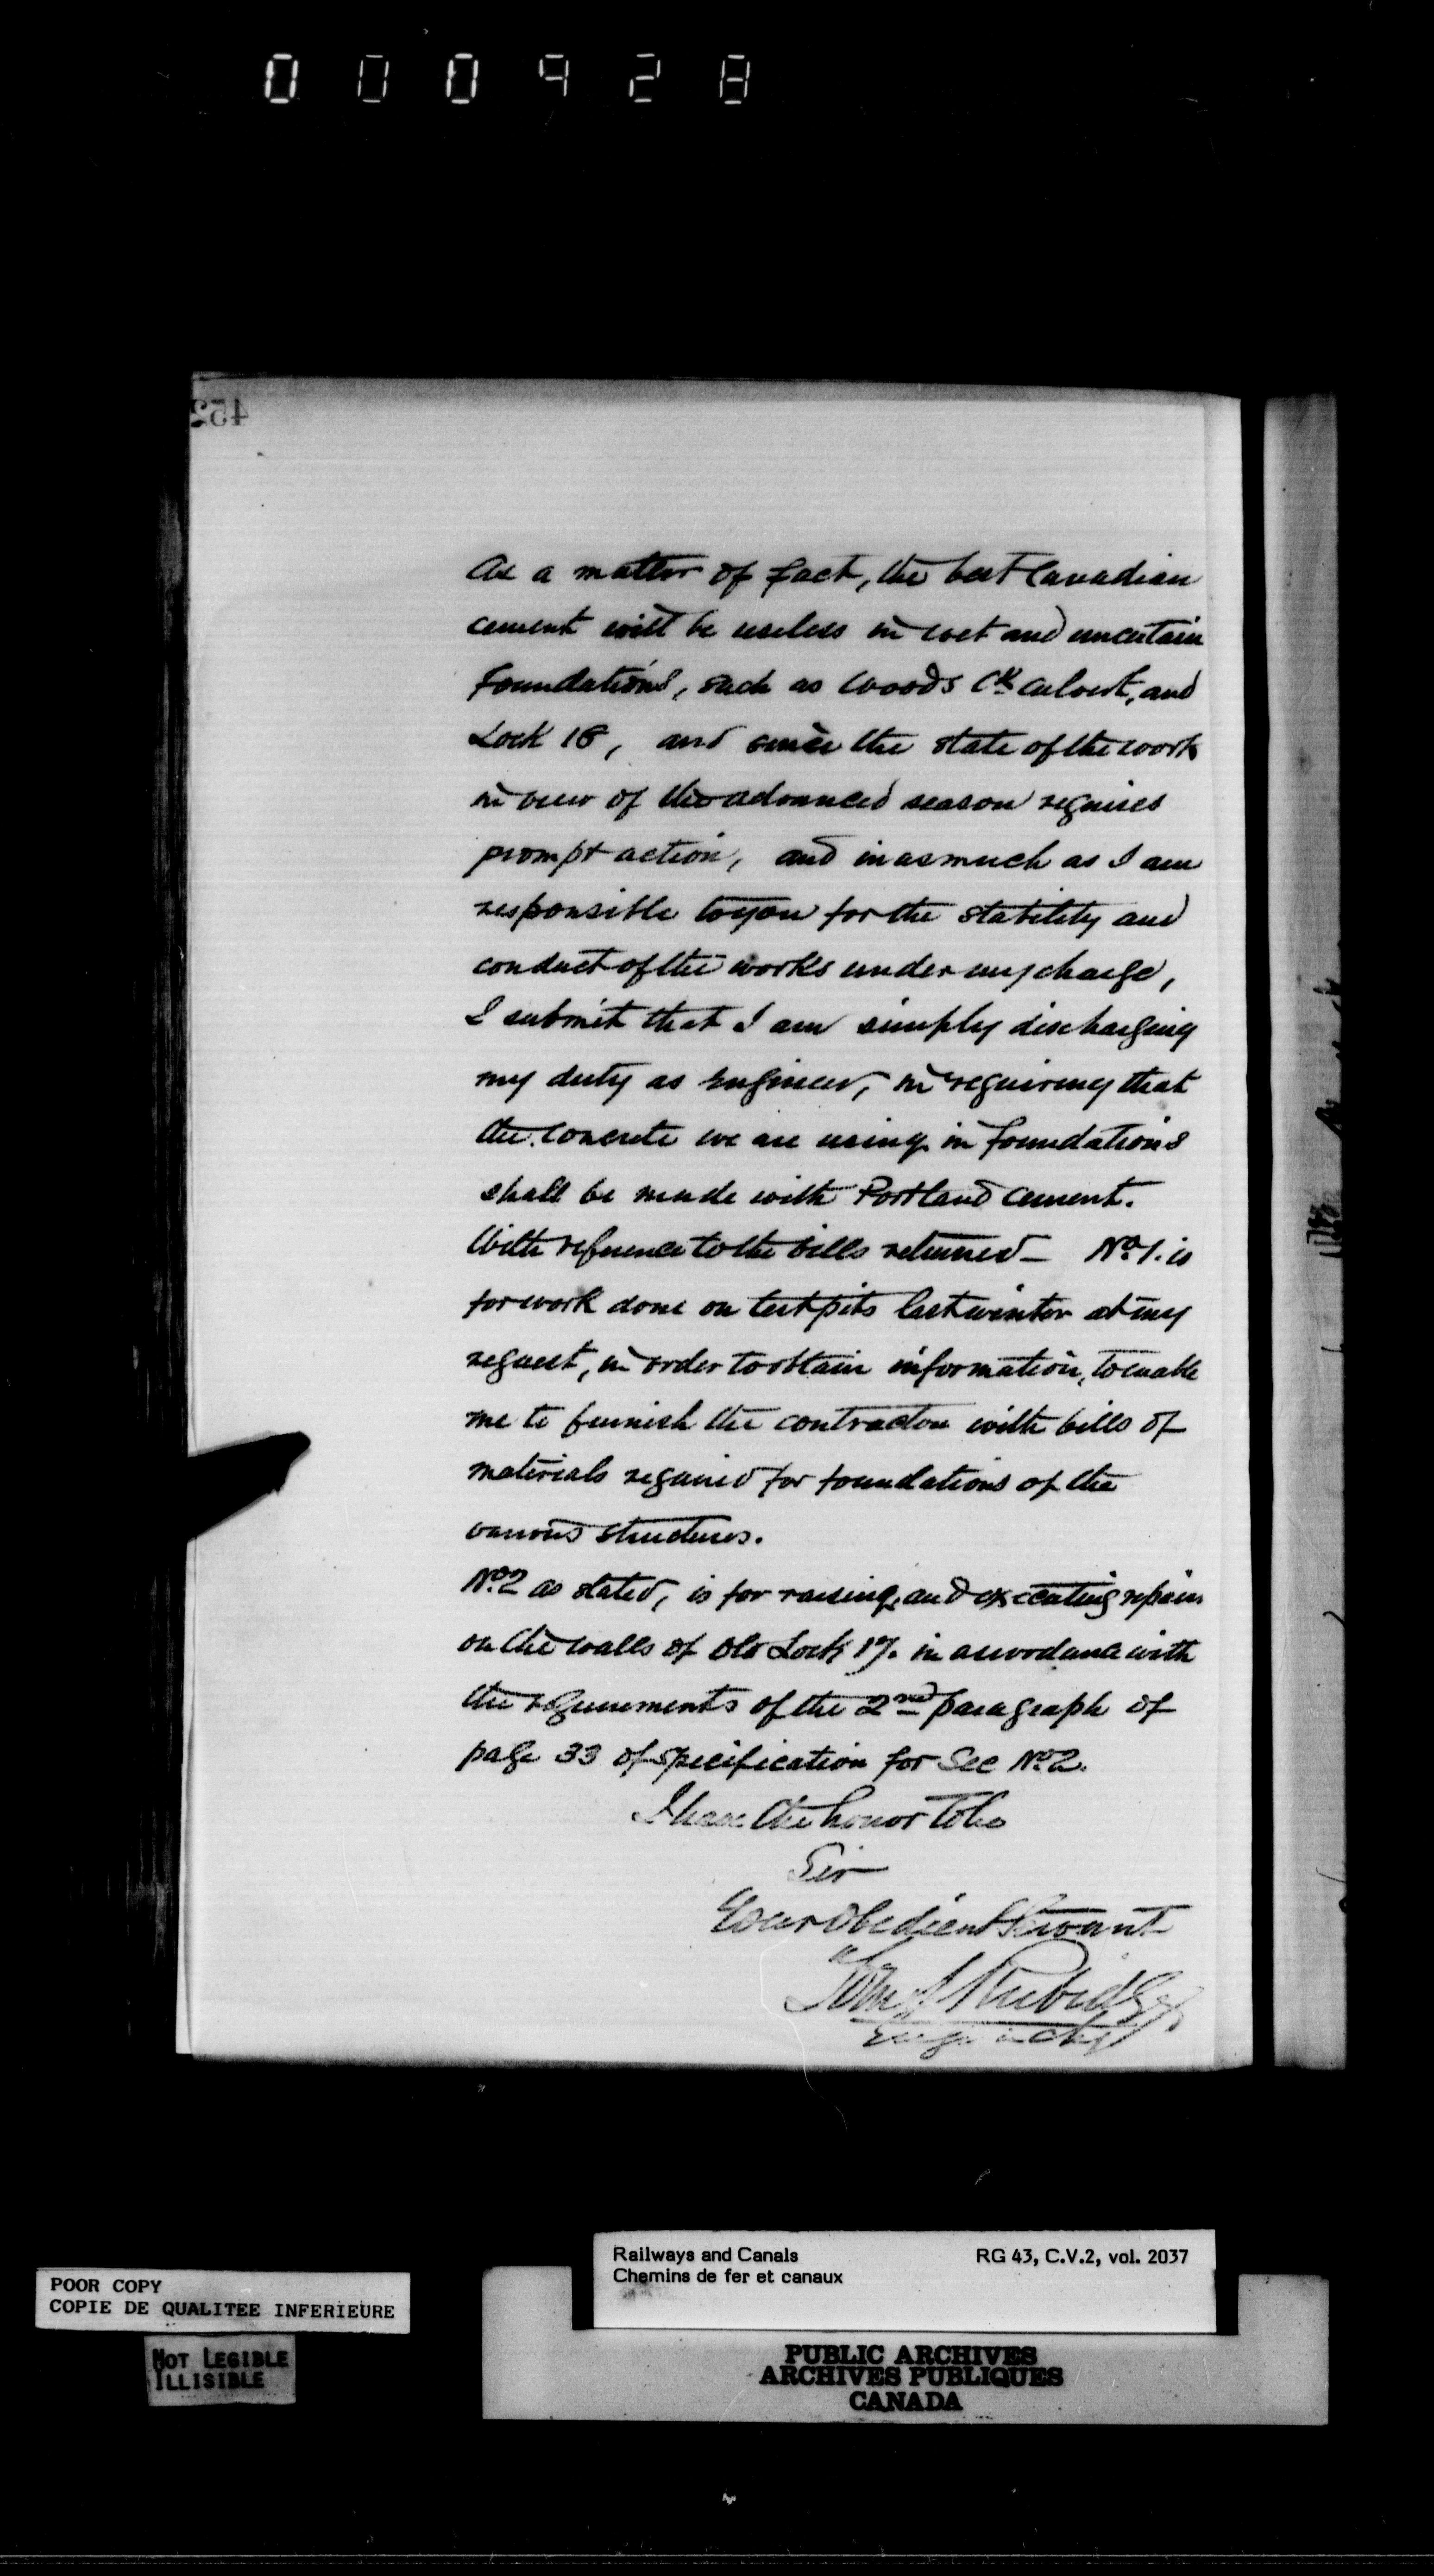 000928
452
As a matter of fact, the best Canadian
cement will be useless in wet and uncertain
foundations, such as Woods Ck culvert, and
Lock 18, and since the state of the work
in view of the advanced season requires
prompt action, and inasmuch as I am
responsible to you for the stability and
conduct of the works under my charge,
I submit that I am simply discharging
my duty as Engineer, in requiring that
the concrete we are using in foundations
shall be made with Portland cement.
With reference to the bills returned — No 1. is
for work done on test pits last winter at my
request, in order to obtain information, to enable
me to furnish the contractors with bills of
materials required for foundations of the
various structures.
No 2 as stated, is for raising, and executing repairs
on the walls of Old Lock 17. in accordance with
the requirements of the 2nd paragraph of
page 33 of specification for Sec No 2.
I have the honor to be
Sir
Your obedient Servant
Tom S Rubidge
Engr in chg
Railways and Canals RG 43, C.V.2, vol. 2037
Chemins de fer et canaux
POOR COPY
COPIE DE QUALITEE INFERIEURE
NOT LEGIBLE
ILLISIBLE
PUBLIC ARCHIVES
ARCHIVES PUBLIQUES
CANADA